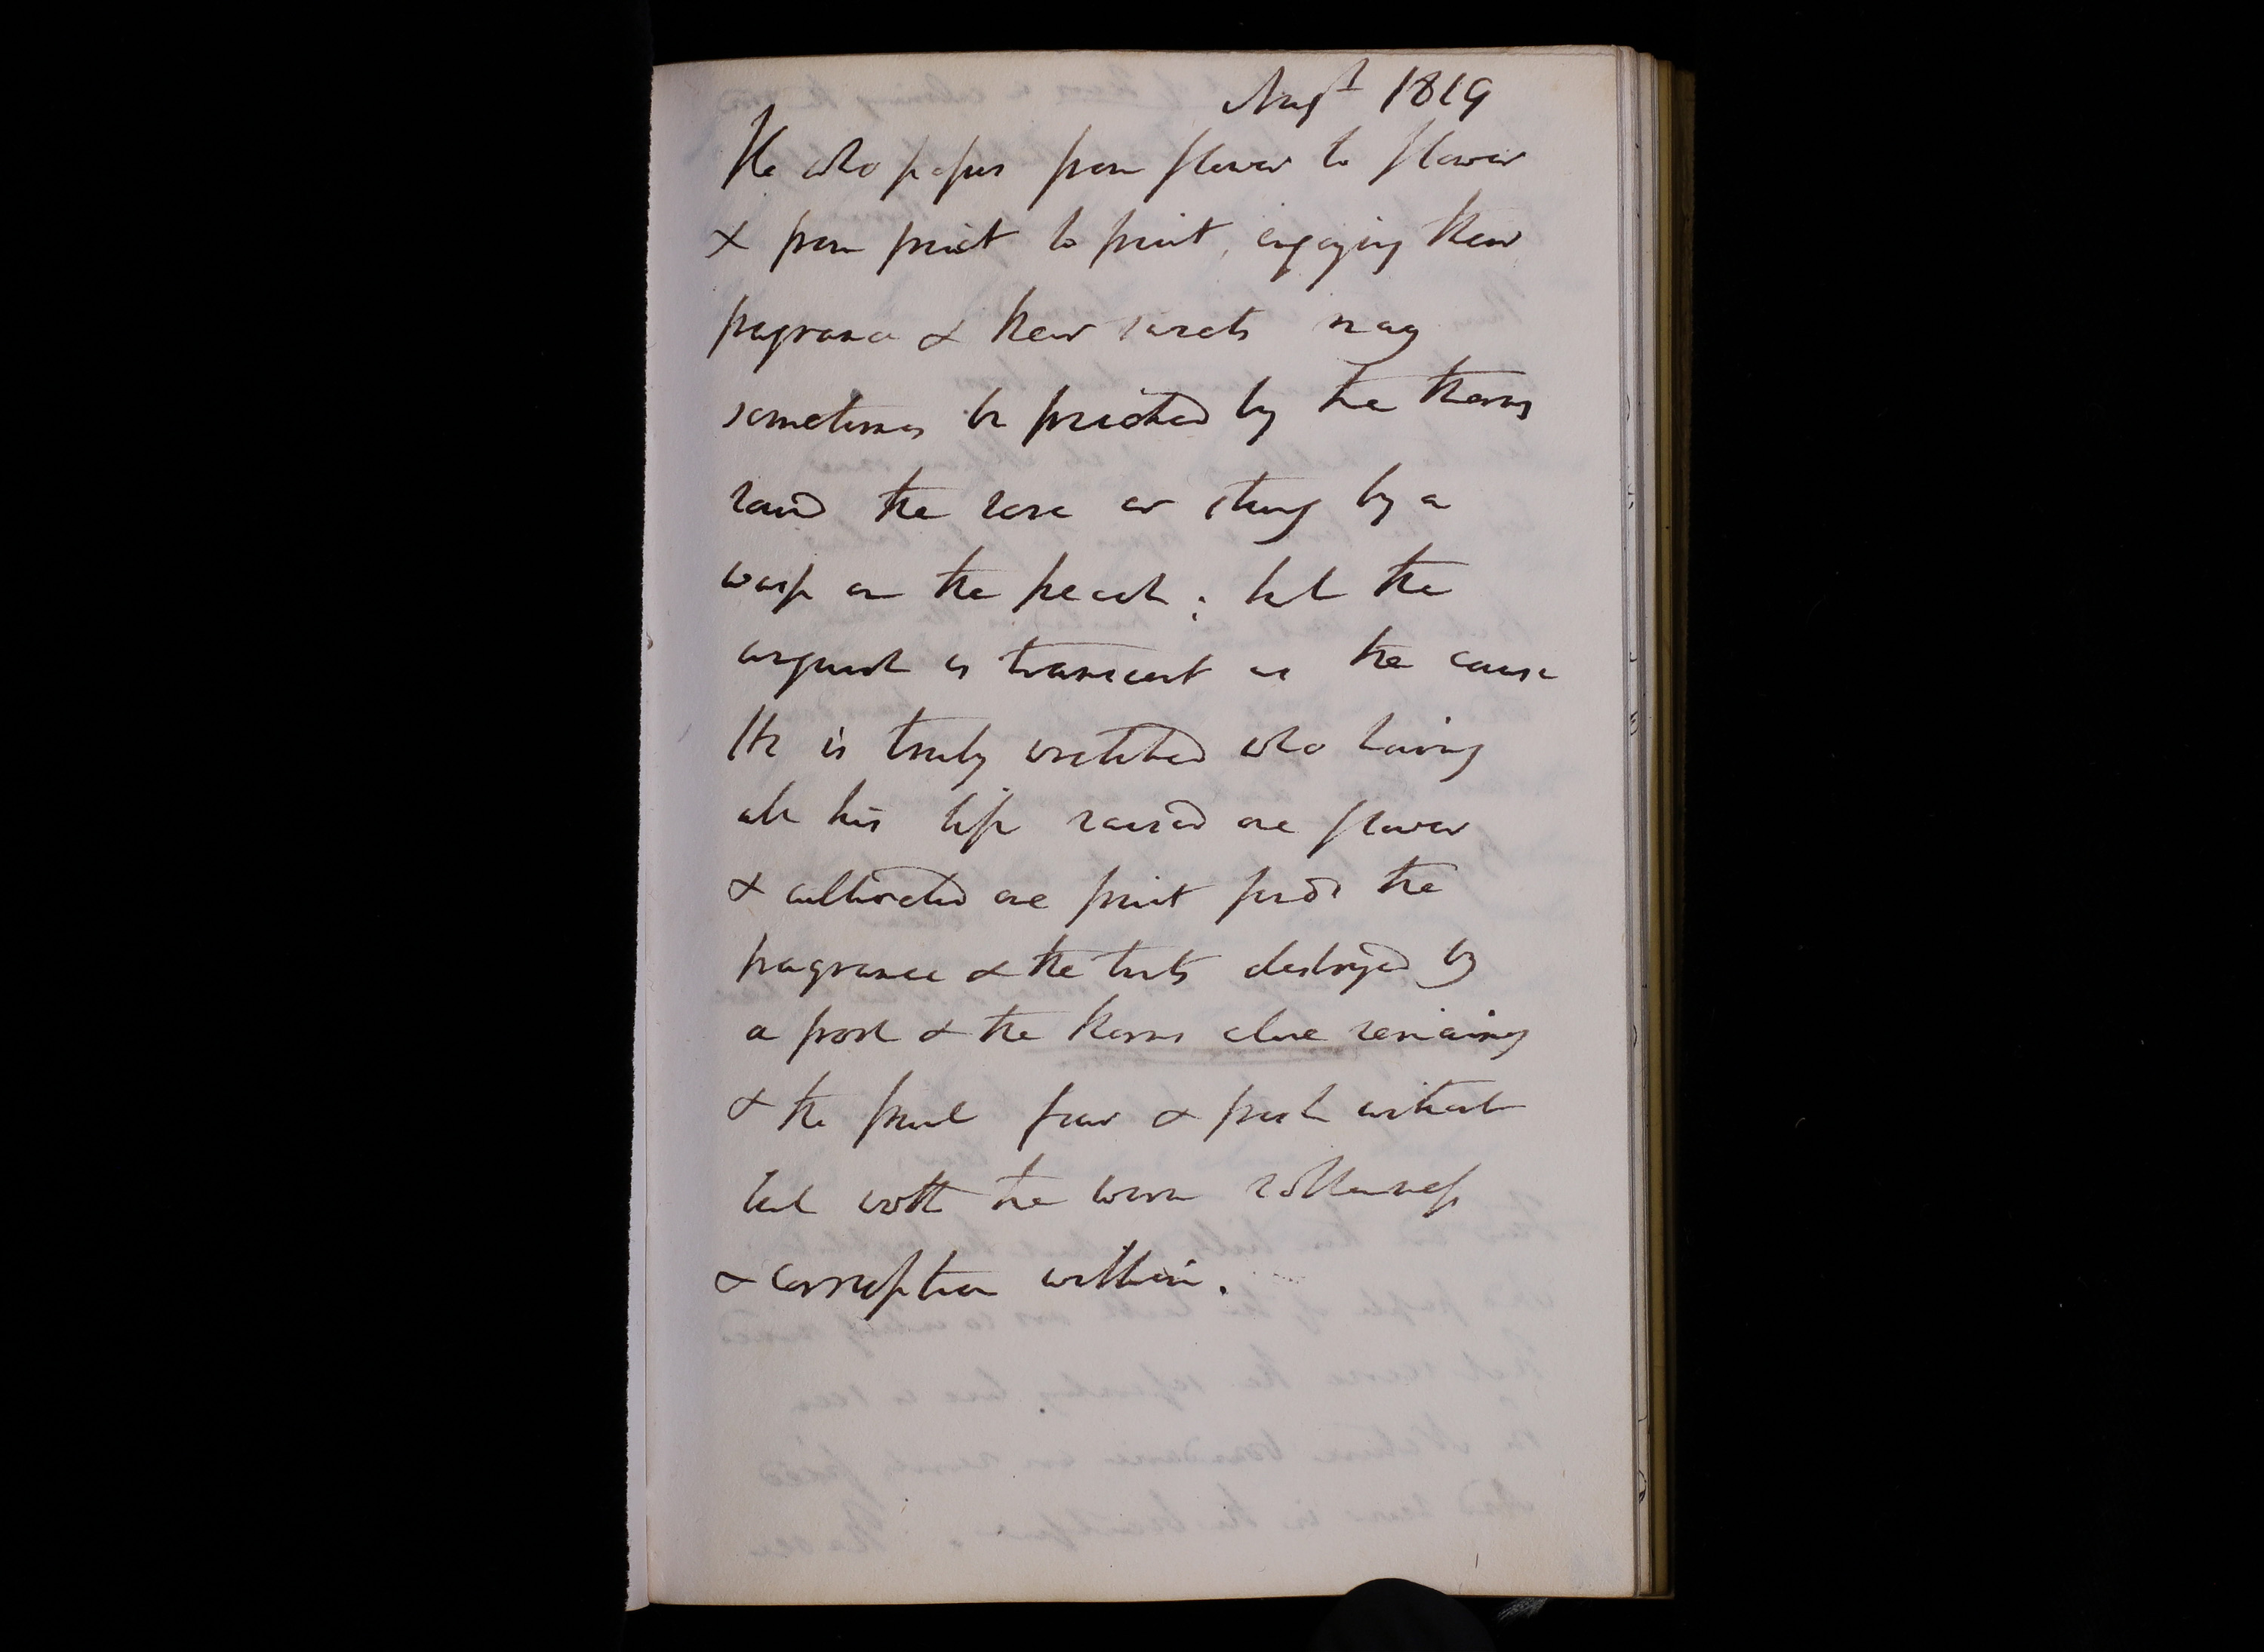 Augst 1819
He who passes from flower to flower
& from fruit to fruit, enjoying their
fragrance & their sweets may
sometimes be pricked by the thorns
round the rose or stung by a
wasp on the peach; but the
anguish is transient as the cause
He is truly wretched who having
all his life raised one flower
& cultivated one fruit finds the
fragrance & the tints destroyed by
a frost & the thorns alone remaining
& the fruit fair & fresh without
but with the worm rottenness
& corruption within.